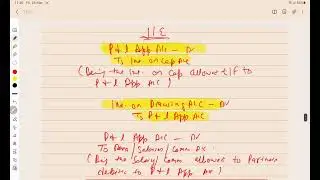 J/E
P & L App A/C — Dr
To Int. on Cap A/c
(Being the Int. on Cap allowed t/f to
P & L App A/C)
Int. on Drawing A/C — Dr
To P & L App A/C
P & L App A/C — Dr
To Salary/Comm. A/c
(Being the Salary/Comm. allowed to Partners
debited to P & L App A/c)